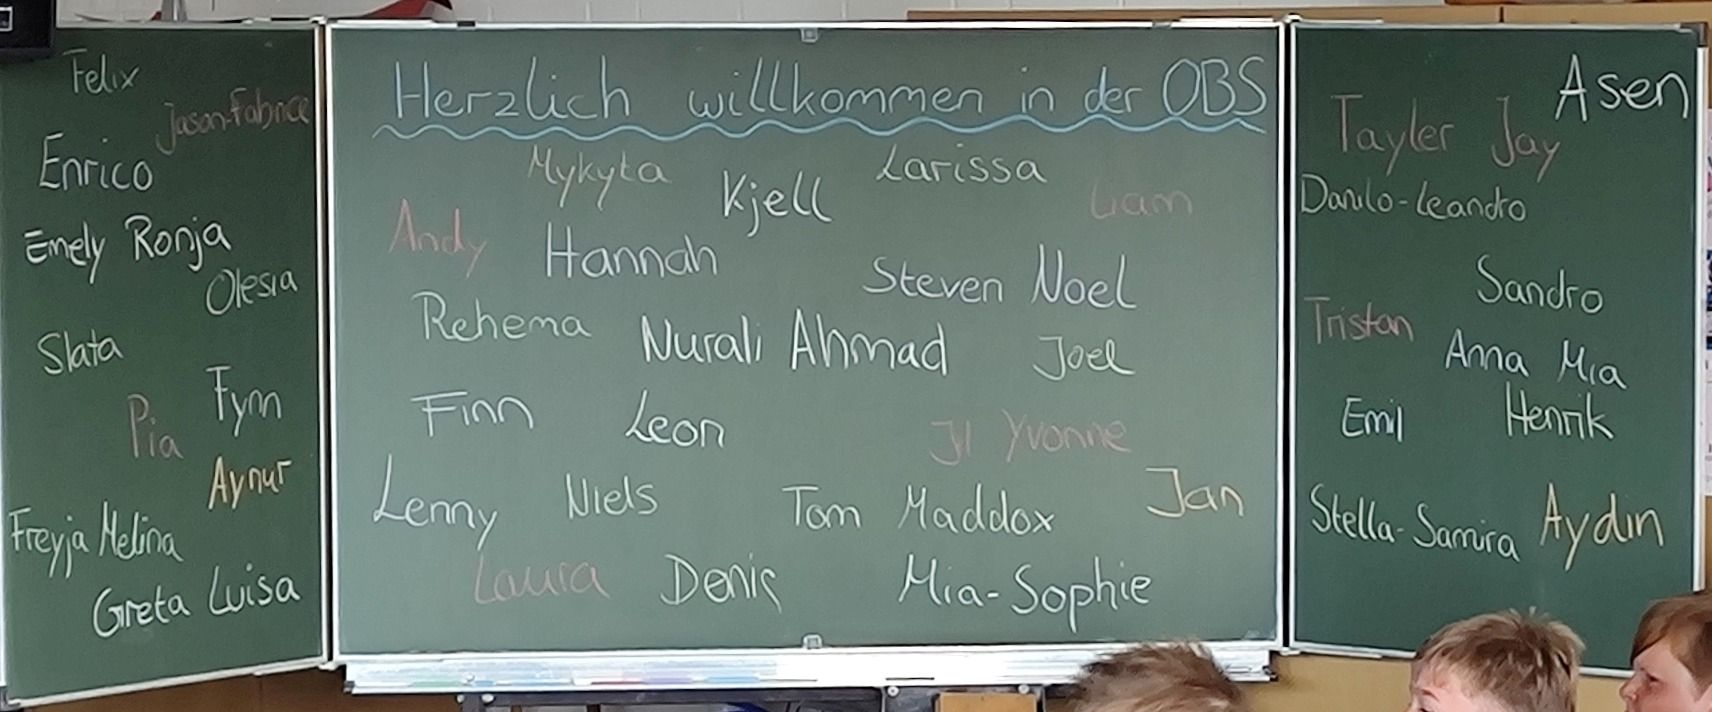 Felix
Jason-Fabrice
Enrico
Emely Ronja
Olesia
Slata
Fynn
Pia
Aynur
Freyja Melina
Greta Luisa
Herzlich willkommen in der OBS
Mykyta
Larissa
Kjell
Liam
Andy
Hannah
Steven Noel
Rehema
Nurali Ahmad
Joel
Finn
Leon
Yvonne
Lenny
Niels
Tom Maddox
Jan
Laura
Denis
Mia-Sophie
Asen
Tayler Jay
Danilo-Leandro
Sandro
Tristan
Anna Mia
Emil
Henrik
Stella-Samira
Aydin